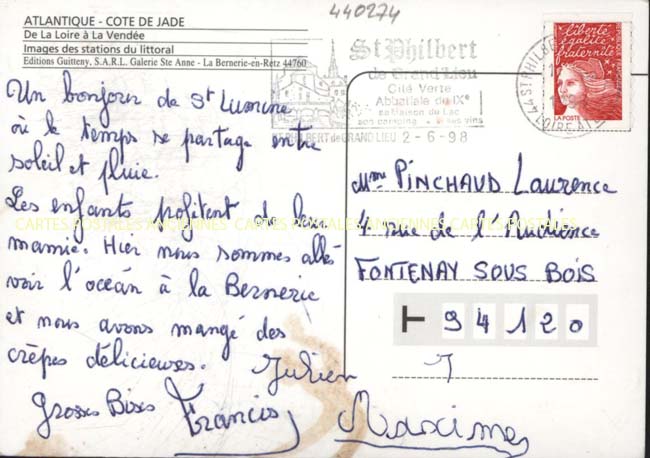 440274
ATLANTIQUE - COTE DE JADE
De La Loire à La Vendée
Images des stations du littoral
Editions Guitteny, S.A.R.L. Galerie Ste Anne - La Bernerie-en-Retz 44760
St Philbert
de Grand Lieu
Cité Verte
Abbatiale du IXe
sa Maison du Lac
son camping ses vins
ST PHILBERT de GRAND LIEU 2-6-98
44 ST PHILBE
LOIRE
liberté
égalité
fraternité
LA POSTE
Un bonjour de St Lumine
où le temps se partage entre
soleil et pluie.
Les enfants profitent de leur
mamie. Hier nous sommes allé
voir l'océan à la Bernerie
et nous avons mangé des
crêpes délicieuses.
Julien
Grosses Bises Francis
Maxime
Mme PINCHAUD Laurence
1 rue de l'Audience
FONTENAY SOUS BOIS
94120
CARTES POSTALES ANCIENNES CARTES POSTALES ANCIENNES CARTES POSTALES